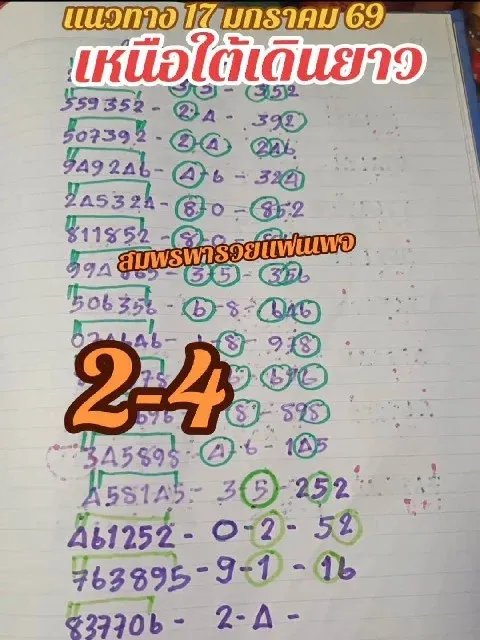 แนวทาง 17 มกราคม 69
เหนือใต้เดินยาว
33 - 352
559352 - 2-A - 392
507392 - 2-A - 2A6
9A92A6 - A-6 - 32A
2A532A - 8-0 - 852
811852 - 8-0
สมพรพารวยแฟนเพจ
99A 965 - 35 - 356
506356 - 6-8 - 646
8 - 978
2-4
78 - 676
8 - 898
3A5898 - A-6 - 1A5
A581A5 - 3 5 - 252
A61252 - 0-2 - 52
763895 - 9-1 - 16
837706 - 2-A -